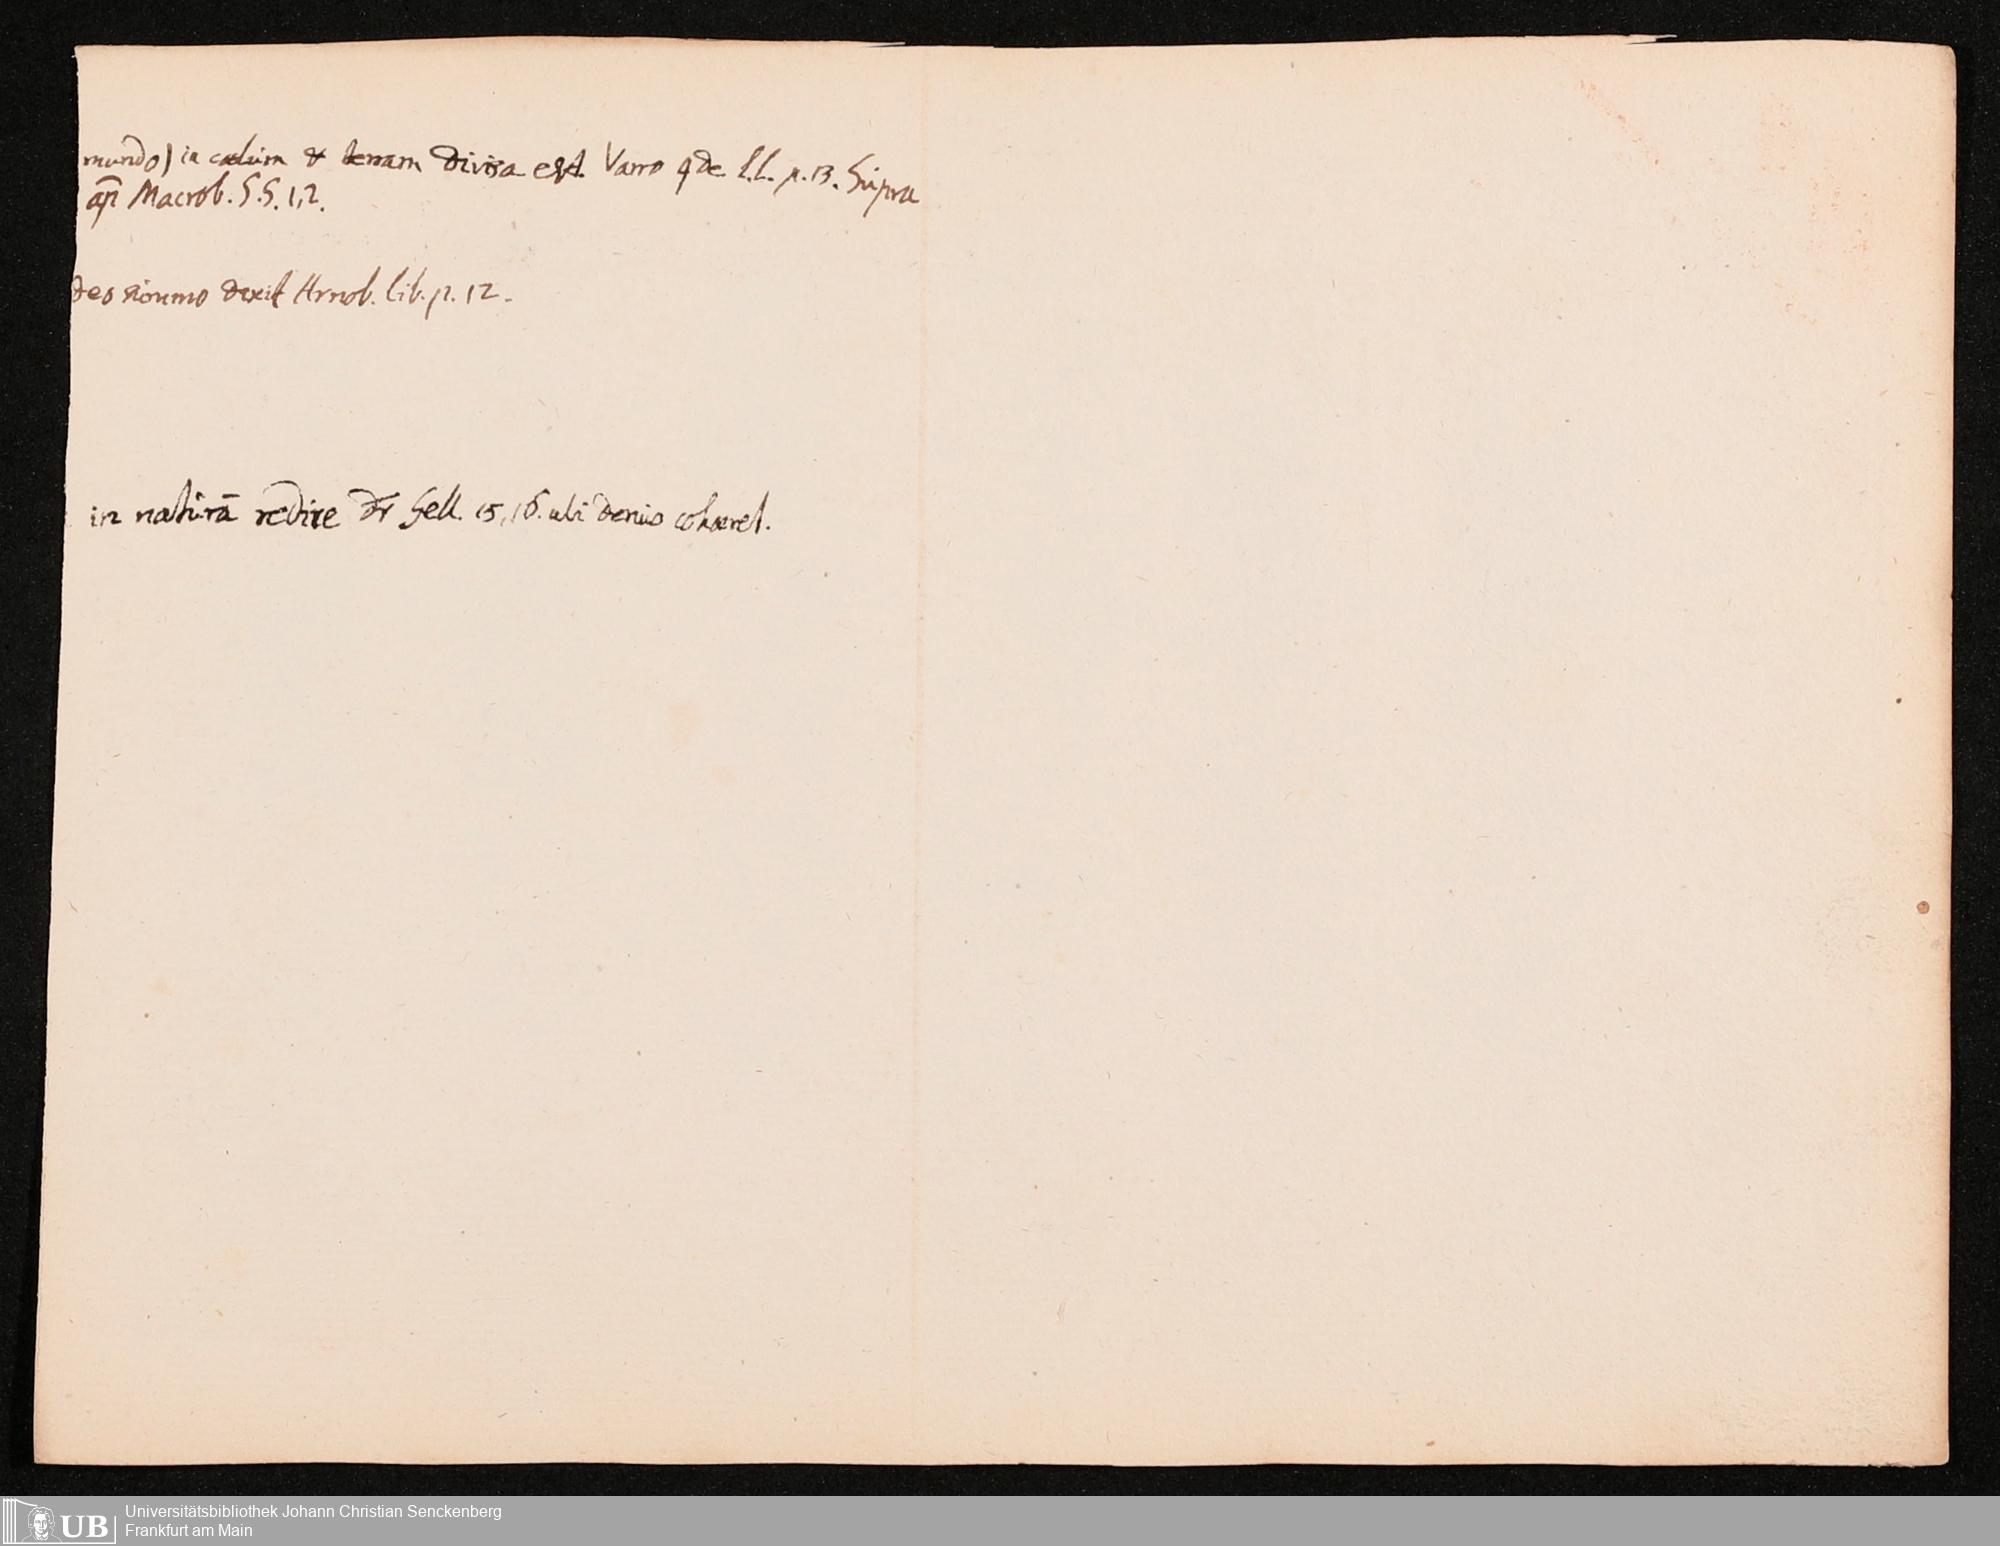 mundo) in cœlum & terram divisa est. Varro 4 de l.l. p. 13. Supra
ap̄ Macrob. S.S. 1,2.
deo summo dixit Arnob. lib. p. 12.
in naturā redire dr Gell. 15, 16. ubi denuo cohæret.
Universitätsbibliothek Johann Christian Senckenberg
Frankfurt am Main
UB